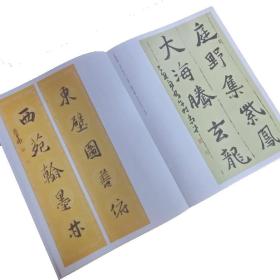 庭野集紫鳳
大海騰玄龍
東壁圖書府
西苑翰墨林